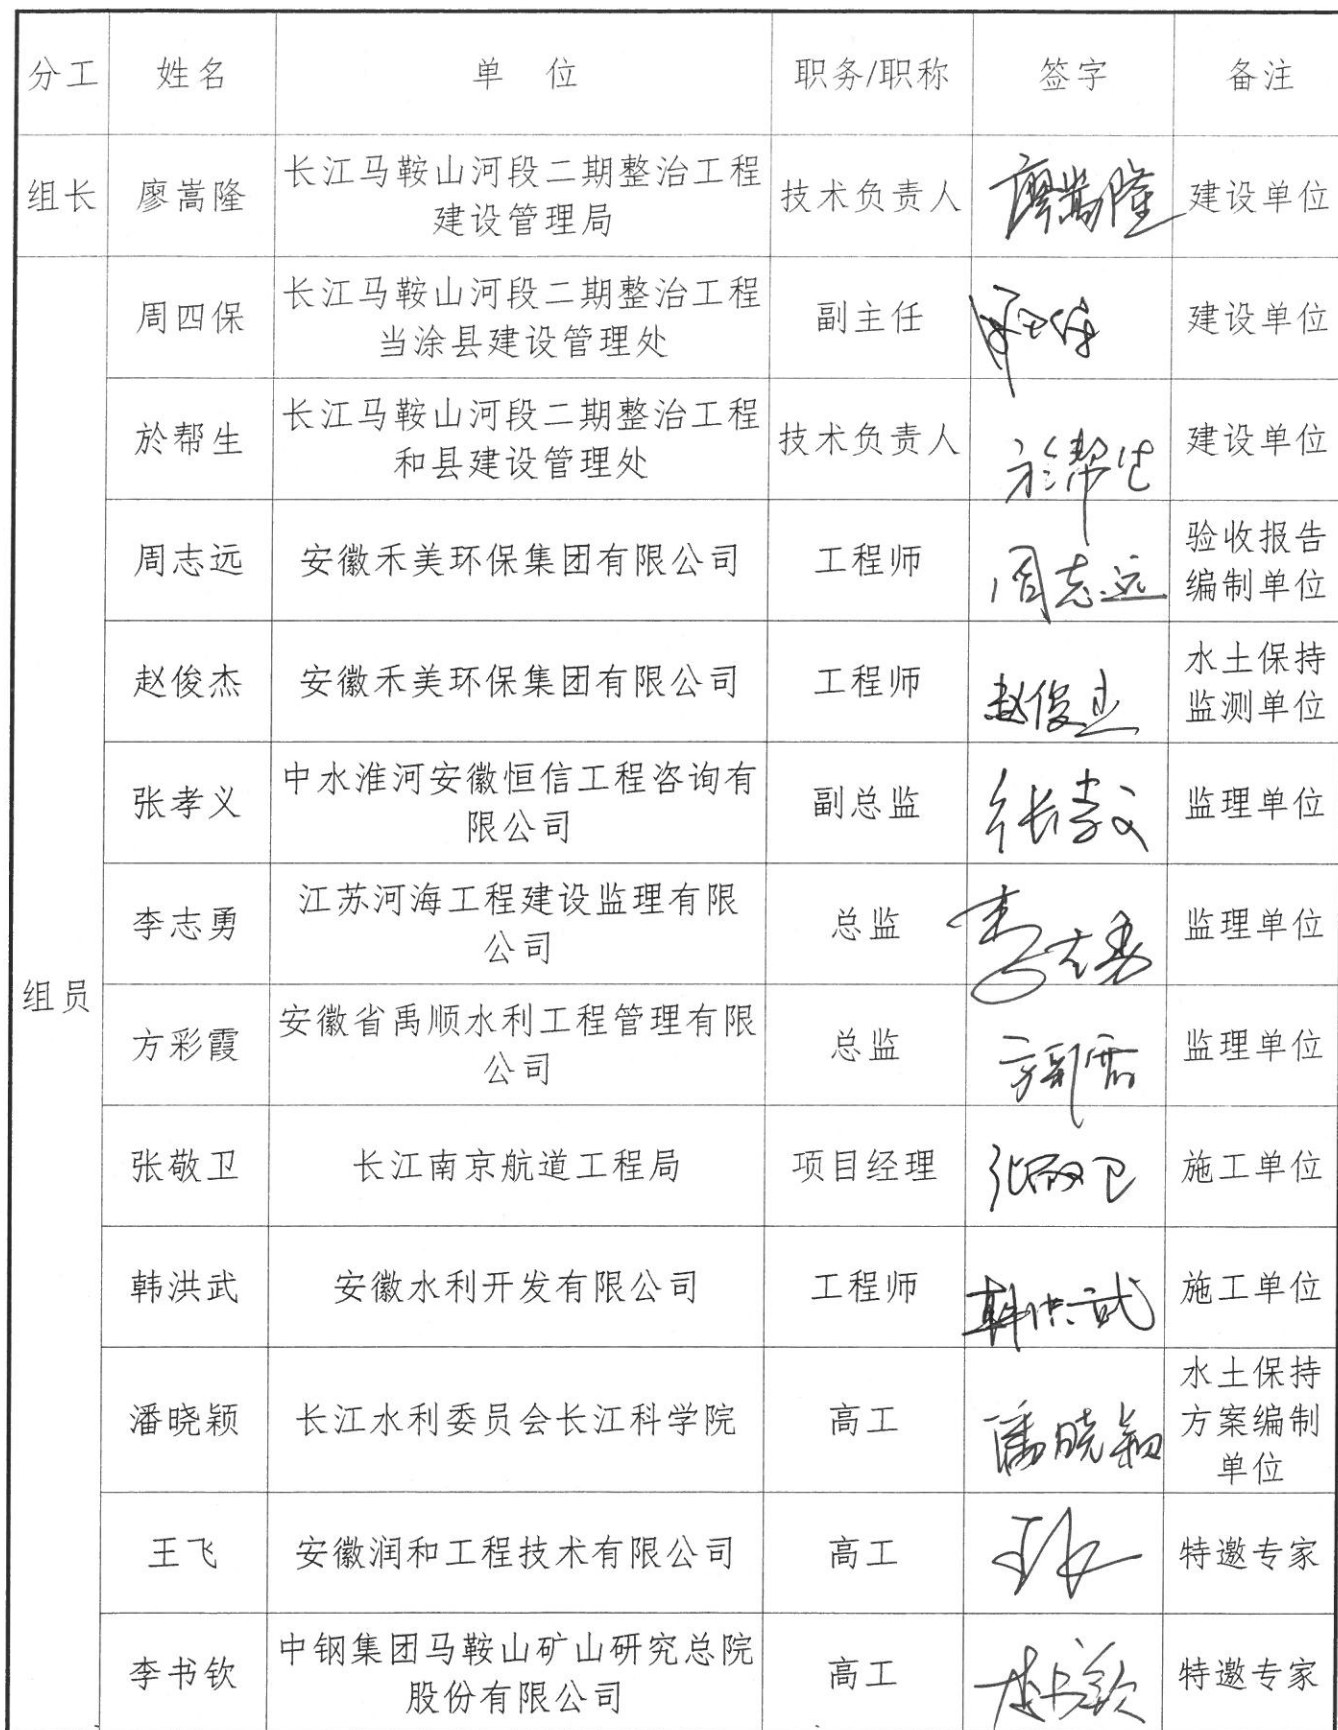 分工 姓名 单 位 职务/职称 签字 备注
组长 廖嵩隆 长江马鞍山河段二期整治工程
建设管理局 技术负责人 廖嵩隆 建设单位
组员
周四保 长江马鞍山河段二期整治工程
当涂县建设管理处 副主任 建设单位
於帮生 长江马鞍山河段二期整治工程
和县建设管理处 技术负责人 於帮生 建设单位
周志远 安徽禾美环保集团有限公司 工程师 周志远 验收报告
编制单位
赵俊杰 安徽禾美环保集团有限公司 工程师 赵俊杰 水土保持
监测单位
张孝义 中水淮河安徽恒信工程咨询有
限公司 副总监 张孝义 监理单位
李志勇 江苏河海工程建设监理有限
公司 总监 李志勇 监理单位
方彩霞 安徽省禹顺水利工程管理有限
公司 总监 方彩霞 监理单位
张敬卫 长江南京航道工程局 项目经理 张敬卫 施工单位
韩洪武 安徽水利开发有限公司 工程师 韩洪武 施工单位
潘晓颖 长江水利委员会长江科学院 高工 潘晓颖 水土保持
方案编制
单位
王飞 安徽润和工程技术有限公司 高工 王飞 特邀专家
李书钦 中钢集团马鞍山矿山研究总院
股份有限公司 高工 李书钦 特邀专家